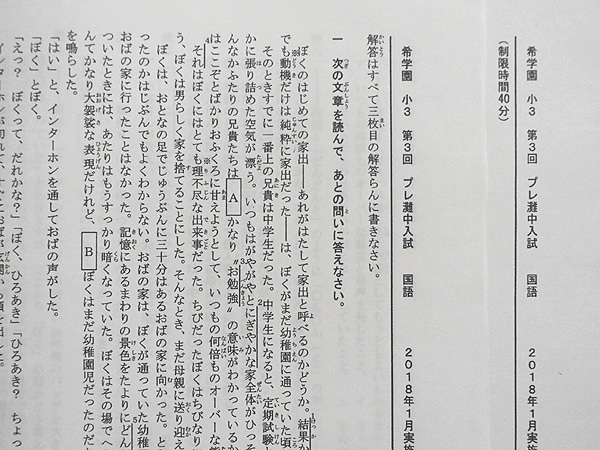 希学園　小3　第3回　プレ灘中入試　国語　2018年1月実施
(制限時間40分)
希学園　小3　第3回　プレ灘中入試　国語　2018年1月実施
解答はすべて三枚目の解答らんに書きなさい。
一　次の文章を読んで、あとの問いに答えなさい。
ぼくのはじめての家出――あれがはたして家出と呼べるのかどうか。結果
でも動機だけは純粋に家出だった――は、ぼくがまだ幼稚園に通っていた頃
そのときすでに一番上の兄貴は中学生だった。中学生になると、定期試験
かに張り詰めた空気が漂う。いつもはがやがやとにぎやかな家全体がひっそ
んなかふたりの兄貴たちは A かなり〝お勉強〟の意味がわかっているか
はここぞとばかりおふくろに甘えようとして、いつもの何倍ものオーバーな
それはぼくにはとても理不尽な出来事だった。ちびだったぼくはちびなりに
う、ぼくは男らしく家を捨てることにした。そんなとき、まだ母親に送り迎え
ぼくは、おとなの足でじゅうぶんに三十分はあるおばの家に向かった。と
ったのかはじぶんでもよくわからない。おばの家は、ぼくが通っていた幼稚
おばの家に行ったことはなかった。記憶にあるまわりの景色をたよりにどん
ついたときには、あたりはもうすっかり暗くなっていた。ぼくはその場でへ
んてかなり大袈裟な表現だけれど、 B ぼくはまだ幼稚園児だったのだか
を鳴らした。
「はい」と、インターホンを通しておばの声がした。
「ぼく」とぼく。
「えっ？　ぼくって、だれかな？」「ぼく、ひろあき」「ひろあき？　ちょっ